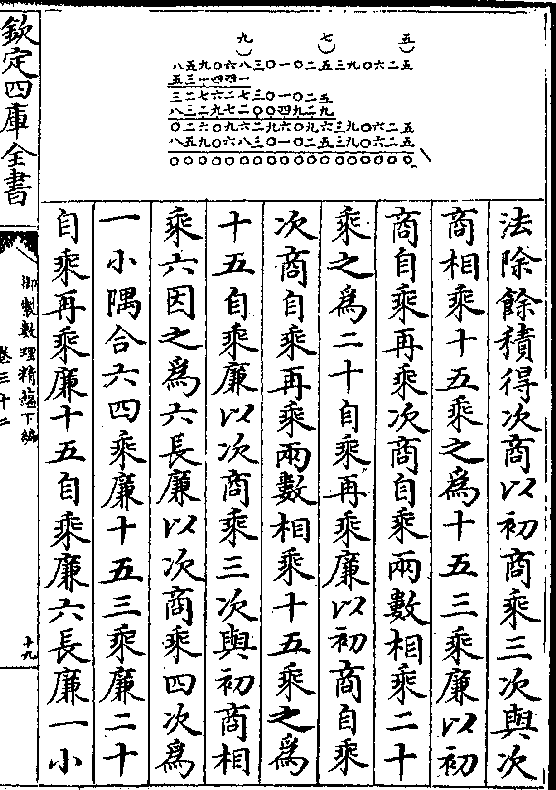 九 七 五
八五九〇六八三〇一〇二五三九〇六二五
五三一四四一
三二七六二七三〇一〇二五
八三二九七二〇〇四九二九
〇二六〇九六二九六〇九六三九〇六二五
八五九〇六八三〇一〇二五三九〇六二五
〇〇〇〇〇〇〇〇〇〇〇〇〇〇〇〇〇〇
法除餘積得次商以初商乘三次與次
商相乘十五乘之為十五三乘廉以初
商自乘再乘次商自乘兩數相乘二十
乘之為二十自乘再乘廉以初商自乘
次商自乘再乘兩數相乘十五乘之為
十五自乘廉以次商乘三次與初商相
乘六因之為六長廉以次商乘四次為
一小隅合六四乘廉十五三乘廉二十
自乘再乘廉十五自乘廉六長廉一小
欽定四庫全書
御製數理精蘊下編
卷三十二
十九